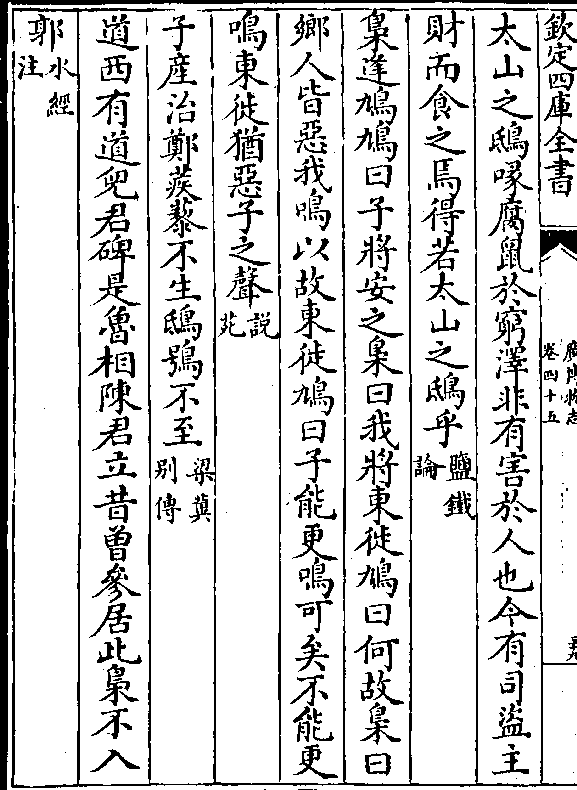 欽定四庫全書
卷四十五
太山之鴟啄腐鼠於窮澤非有害於人也今有司盜主
財而食之焉得若太山之鴟乎鹽鐵論
梟逢鳩鳩曰子將安之梟曰我將東徙鳩曰何故梟曰
鄉人皆惡我鳴以故東徙鳩曰子能更鳴可矣不能更
鳴東徙猶惡子之聲說苑
子產治鄭蒺藜不生鴟鴞不至梁冀別傳
道西有道兒君碑是魯相陳君立昔曾參居此梟不入
郭水經注